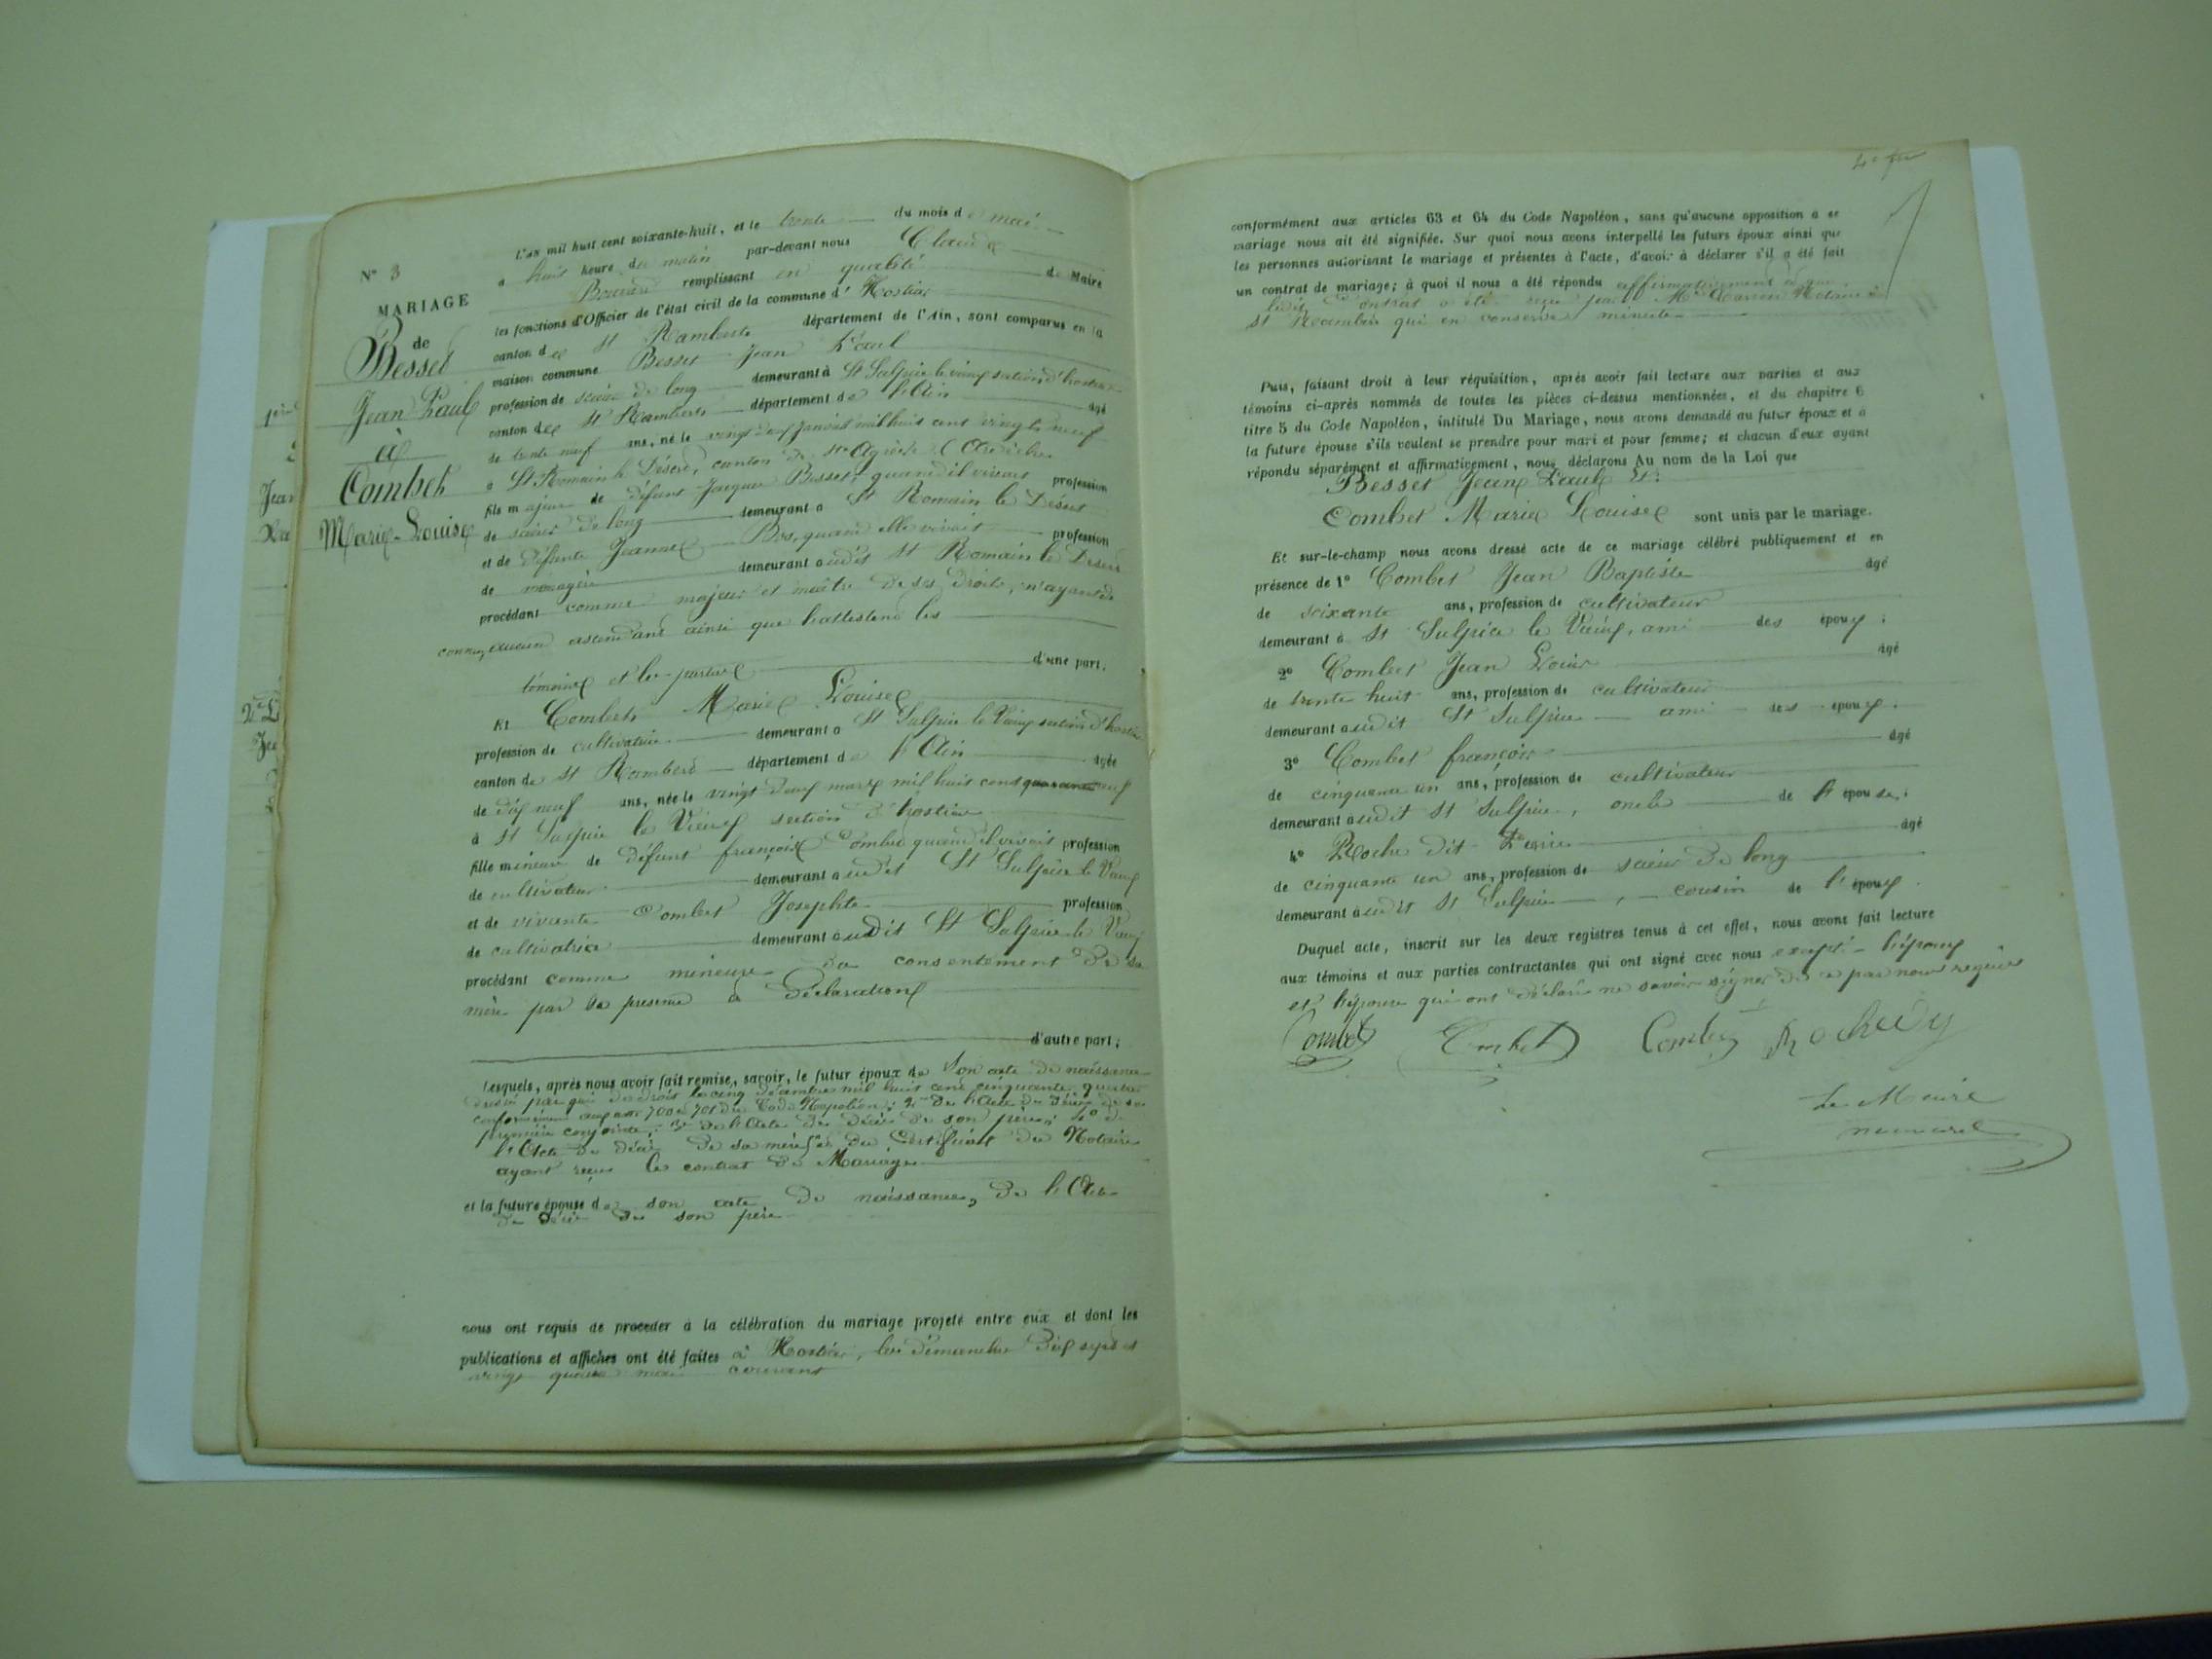 N° 3
MARIAGE
de
Besset
Jean Paul
à
Combet
Marie-Louise
L'an mil huit cent soixante-huit, et le trente du mois de mai
à huit heure du matin par-devant nous Claude
remplissant en qualité de Maire
les fonctions d'Officier de l'état civil de la commune d'Hostias
canton de St Rambert département de l'Ain, sont comparus en la
maison commune Besset Jean Paul
profession de scieur de long demeurant à St Sulpice le vieux section d'hostias
canton de St Rambert département de l'Ain âgé
de trente neuf ans, né le vingt neuf janvier mil huit cent vingt neuf
à St Romain le Désert, canton de St Agrève (Ardèche)
fils majeur de défunt Jacques Besset, quand il vivait profession
de scieur de long demeurant à St Romain le Désert
et de défunte Jeanne Bos, quand elle vivait profession
de ménagère demeurant audit St Romain le Désert
procédant comme majeur et maître de ses droits, n'ayant de
connu, aucun ascendant ainsi que l'attestent les
témoins et les parties d'une part.
Et Combet Marie Louise
profession de cultivatrice demeurant à St Sulpice le Vieux section d'hostias
canton de St Rambert département de l'Ain âgée
de dix neuf ans, née le vingt deux mars mil huit cent quarante neuf
à St Sulpice le Vieux section d'hostias
fille mineure de défunt françois Combet quand il vivait profession
de cultivateur demeurant audit St Sulpice le Vieux
et de vivante Combet Josephte profession
de cultivatrice demeurant audit St Sulpice le Vieux
procédant comme mineure du consentement de sa
mère par sa présence et déclaration
d'autre part;
Lesquels, après nous avoir fait remise, savoir, le futur époux de son acte de naissance
dressé par qui de droit le cinq décembre mil huit cent cinquante quatre
conformément aux arts 70 et 71 du Code Napoléon; 2° de l'acte de décès de sa
première conjointe; 3° de l'acte de décès de son père; 4° de
l'acte de décès de sa mère; 5° du Certificat du Notaire
ayant reçu le contrat de Mariage
et la future épouse de son acte de naissance, de l'Acte
de décès de son père
nous ont requis de procéder à la célébration du mariage projeté entre eux et dont les
publications et affiches ont été faites à Hostias, les dimanches dix sept et
vingt quatre mai courant
conformément aux articles 63 et 64 du Code Napoléon, sans qu'aucune opposition à ce
mariage nous ait été signifiée. Sur quoi nous avons interpellé les futurs époux ainsi que
les personnes autorisant le mariage et présentes à l'acte, d'avoir à déclarer s'il a été fait
un contrat de mariage; à quoi il nous a été répondu affirmativement et que
ledit Contrat a été reçu par Me Notaire à
St Rambert qui en conserve minute
Puis, faisant droit à leur réquisition, après avoir fait lecture aux parties et aux
témoins ci-après nommés de toutes les pièces ci-dessus mentionnées, et du chapitre 6
titre 5 du Code Napoléon, intitulé Du Mariage, nous avons demandé au futur époux et à
la future épouse s'ils veulent se prendre pour mari et pour femme; et chacun d'eux ayant
répondu séparément et affirmativement, nous déclarons Au nom de la Loi que
Besset Jean Paul Et
Combet Marie Louise sont unis par le mariage.
Et sur-le-champ nous avons dressé acte de ce mariage célébré publiquement et en
présence de 1° Combet Jean Baptiste âgé
de soixante ans, profession de cultivateur
demeurant à St Sulpice le Vieux, ami des époux;
2° Combet Jean Louis âgé
de trente huit ans, profession de cultivateur
demeurant audit St Sulpice ami des époux.
3° Combet françois âgé
de cinquante un ans, profession de cultivateur
demeurant audit St Sulpice, oncle de l'épouse;
4° Roche dit âgé
de cinquante un ans, profession de scieur de long
demeurant audit St Sulpice, cousin de l'époux.
Duquel acte, inscrit sur les deux registres tenus à cet effet, nous avons fait lecture
aux témoins et aux parties contractantes qui ont signé avec nous excepté l'époux
et l'épouse qui ont déclaré ne savoir signer de ce par nous requis
Combet Combet Combet
Le Maire